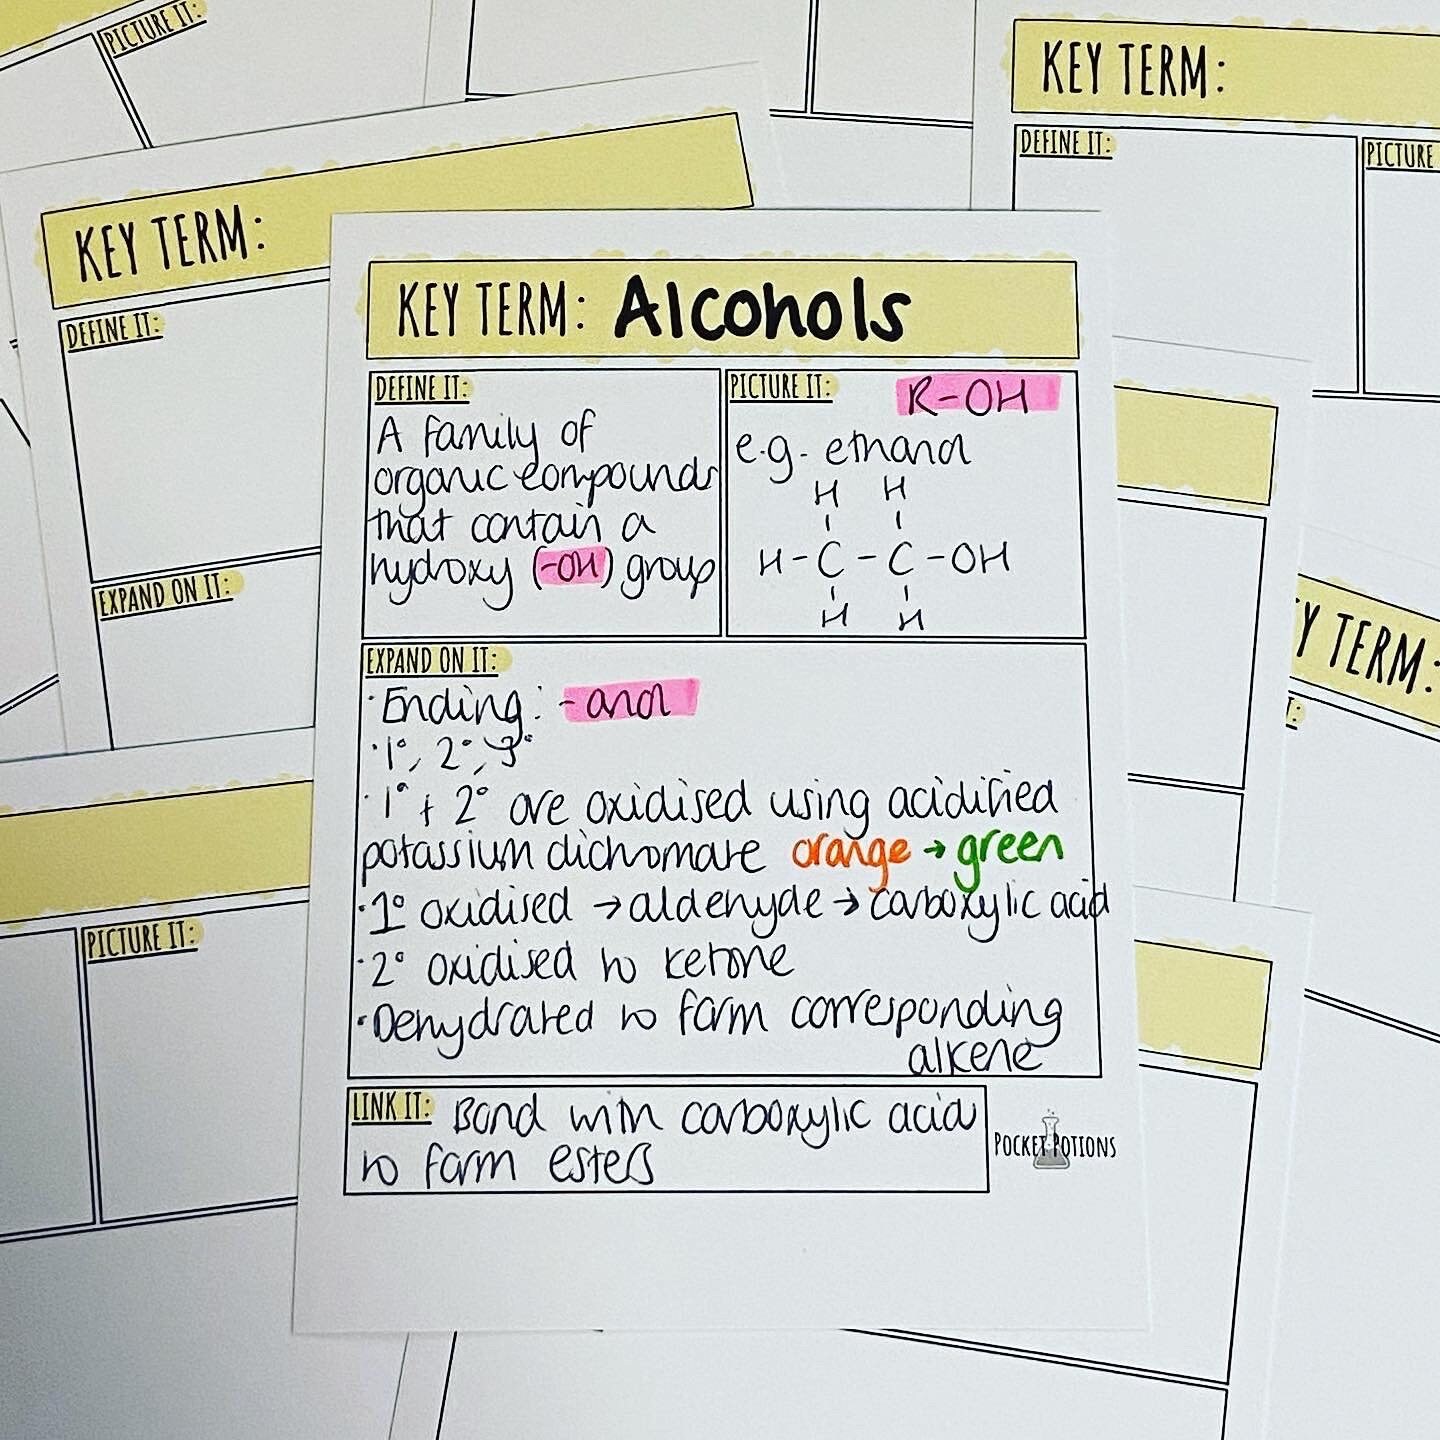 PICTURE IT:
KEY TERM:
DEFINE IT:
PICTURE
KEY TERM:
DEFINE IT:
EXPAND ON IT:
KEY TERM: Alcohols
DEFINE IT:
A family of
organic compounds
that contain a
hydroxy (-OH) group
PICTURE IT:
R-OH
e.g. ethanol
H H
H-C-C-OH
H H
EXPAND ON IT:
·Ending: -anol
·1°, 2°, 3°
·1° + 2° are oxidised using acidified
potassium dichromate orange → green
·1° oxidised → aldehyde → carboxylic acid
·2° oxidised to ketone
·Dehydrated to form corresponding
alkene
LINK IT: Bond with carboxylic acid
to form esters
POCKET POTIONS
Y TERM:
T:
PICTURE IT: